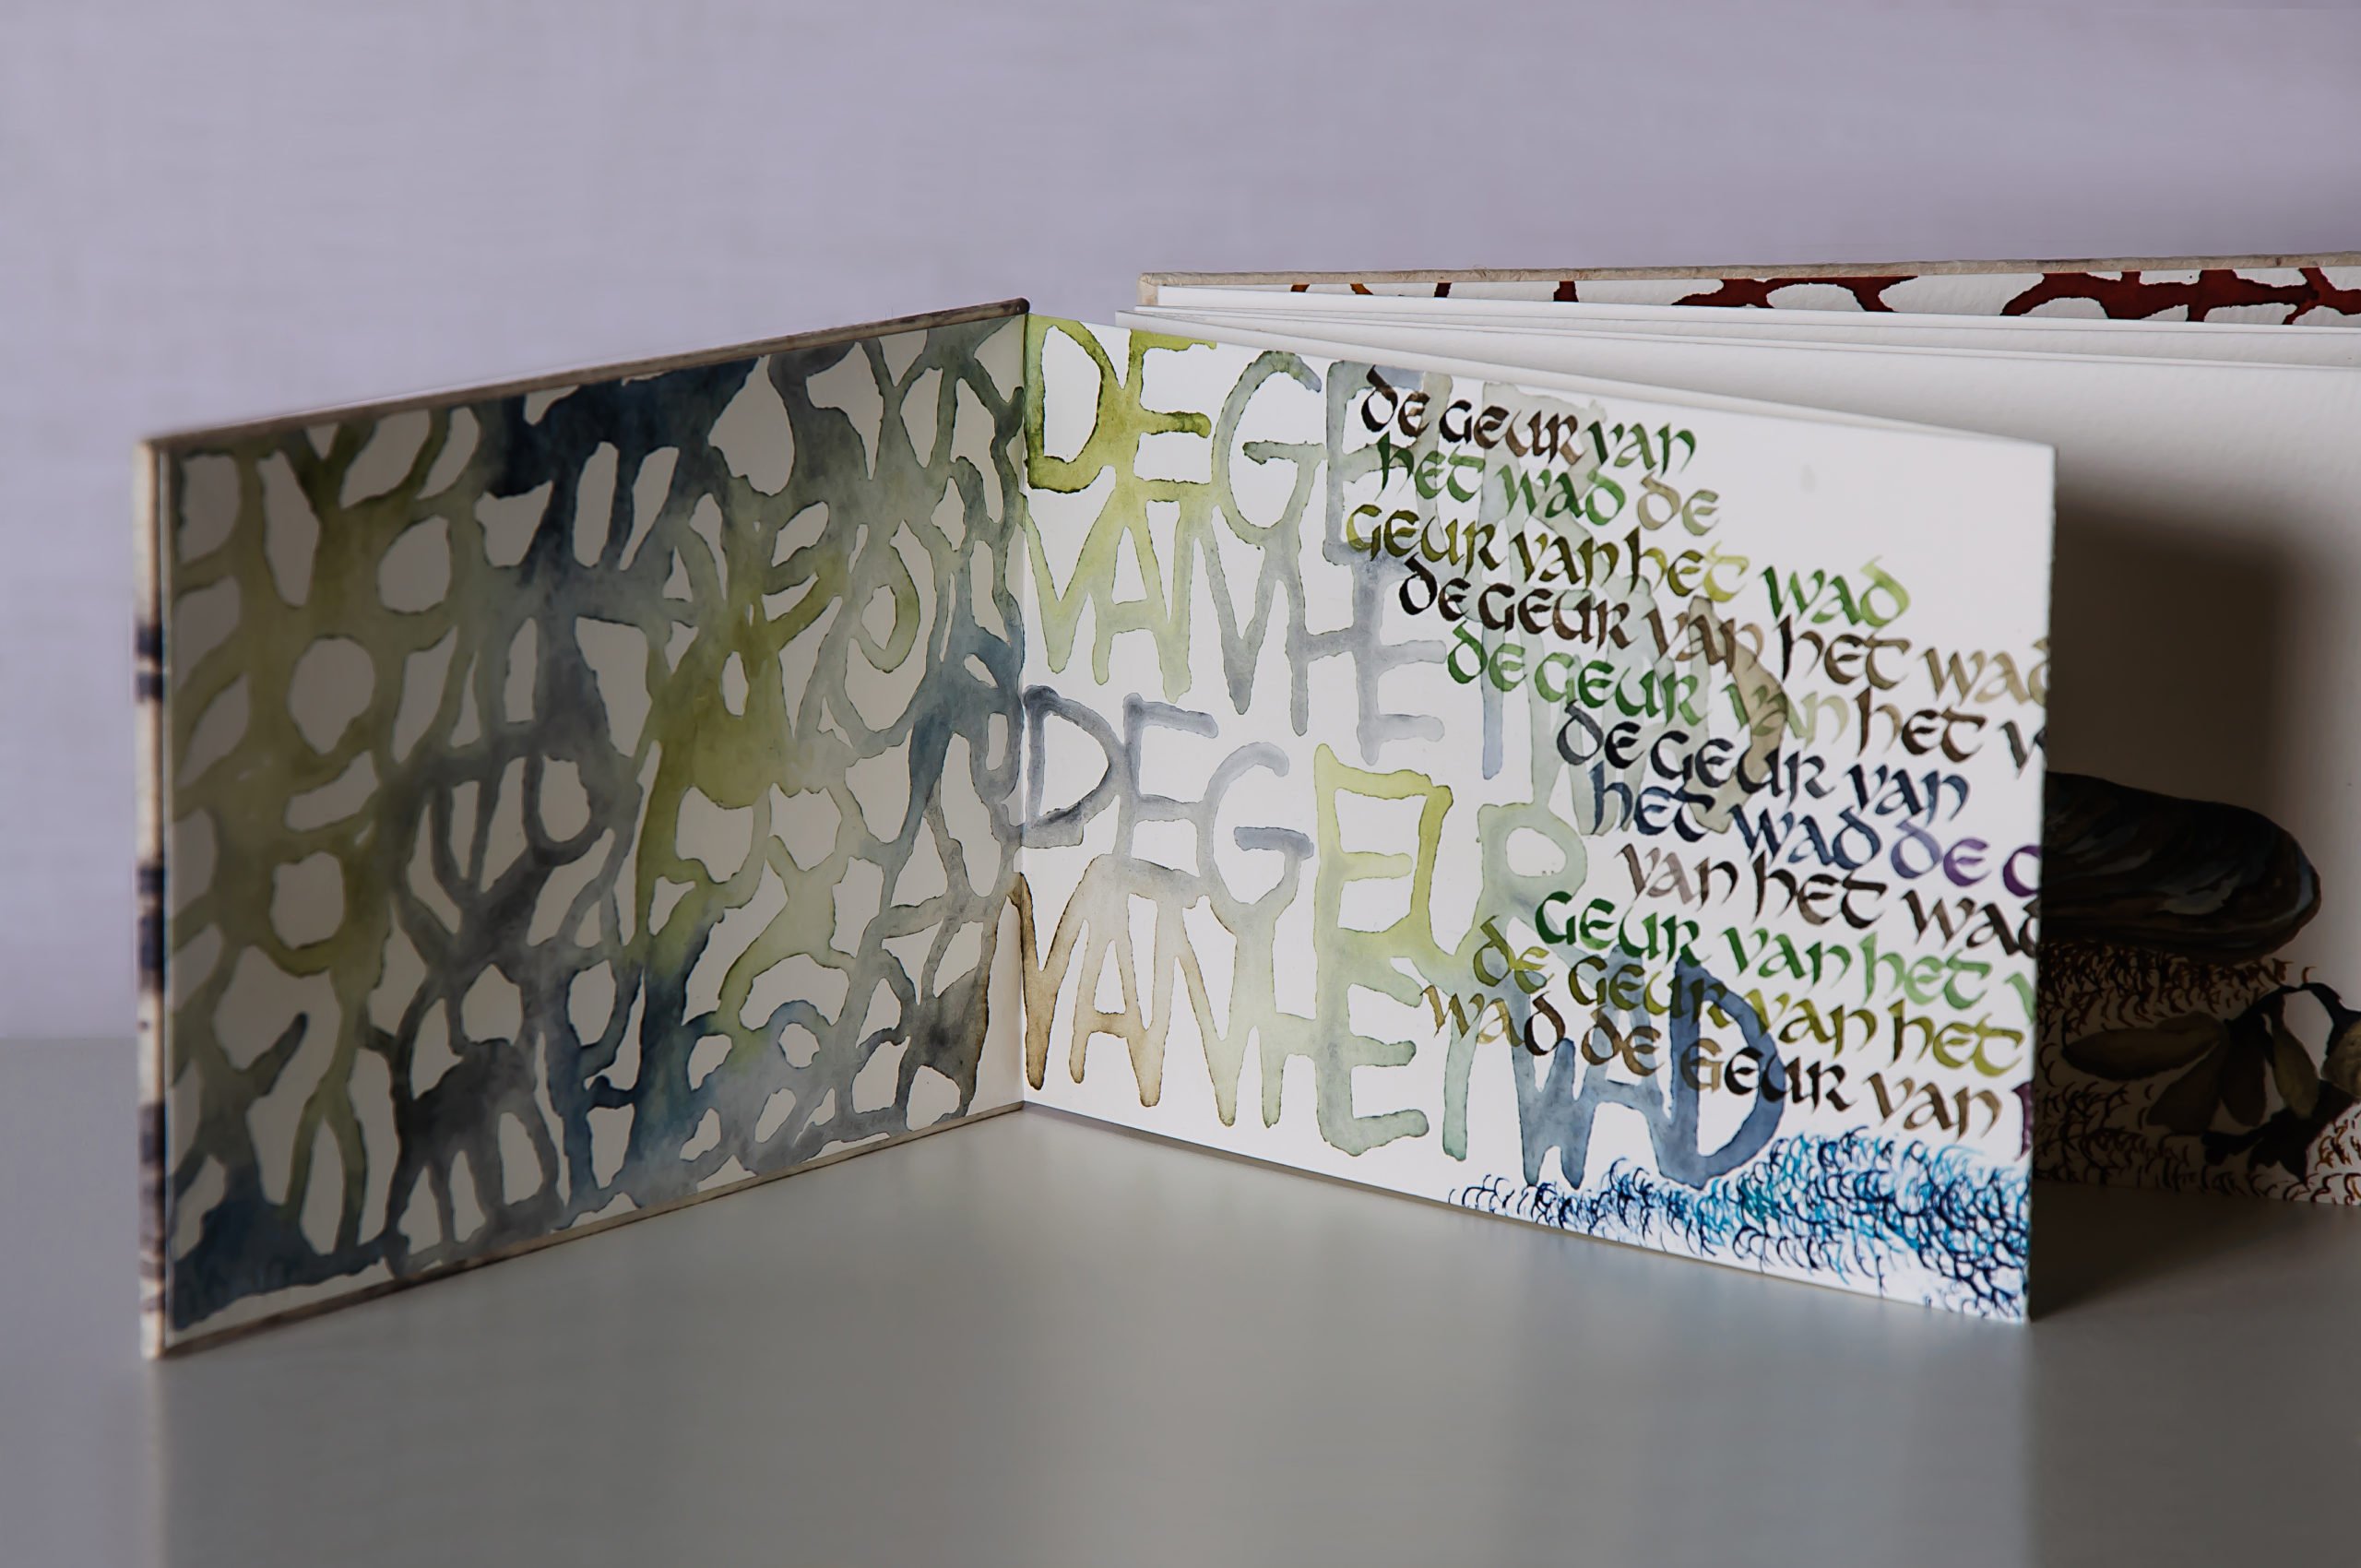 DE GEUR
VAN HET WAD
DE GEUR
VAN HET WAD
de geur van
het wad de
geur van het wad
de geur van het wad
de geur van het w
de geur van
het wad de g
van het wad
geur van het w
de geur van het
wad de geur van h